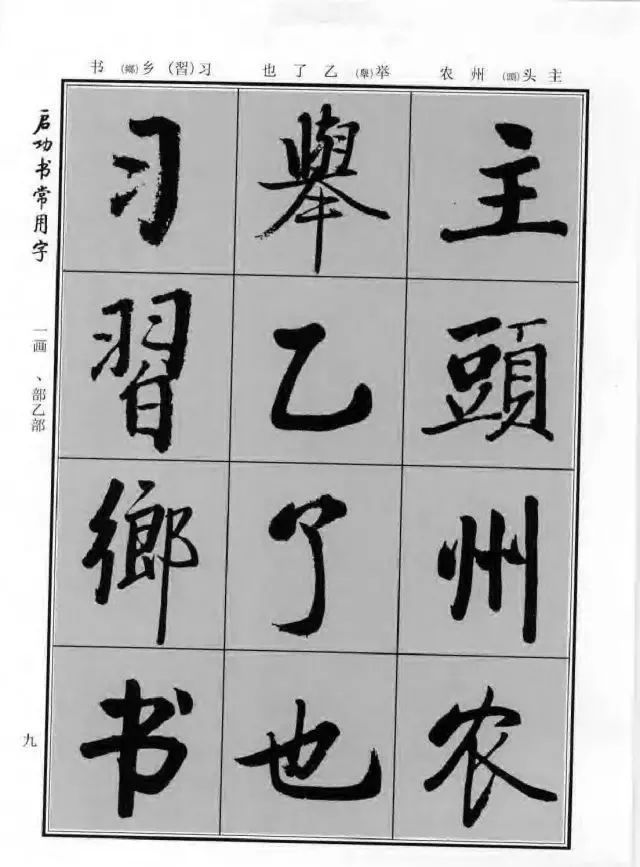 主 头(頭) 州 农
举(舉) 乙 了 也
习(習) 乡(鄉) 书
主頭州农
舉乙了也
习習鄉书
启功书常用字
一画 、部乙部
九